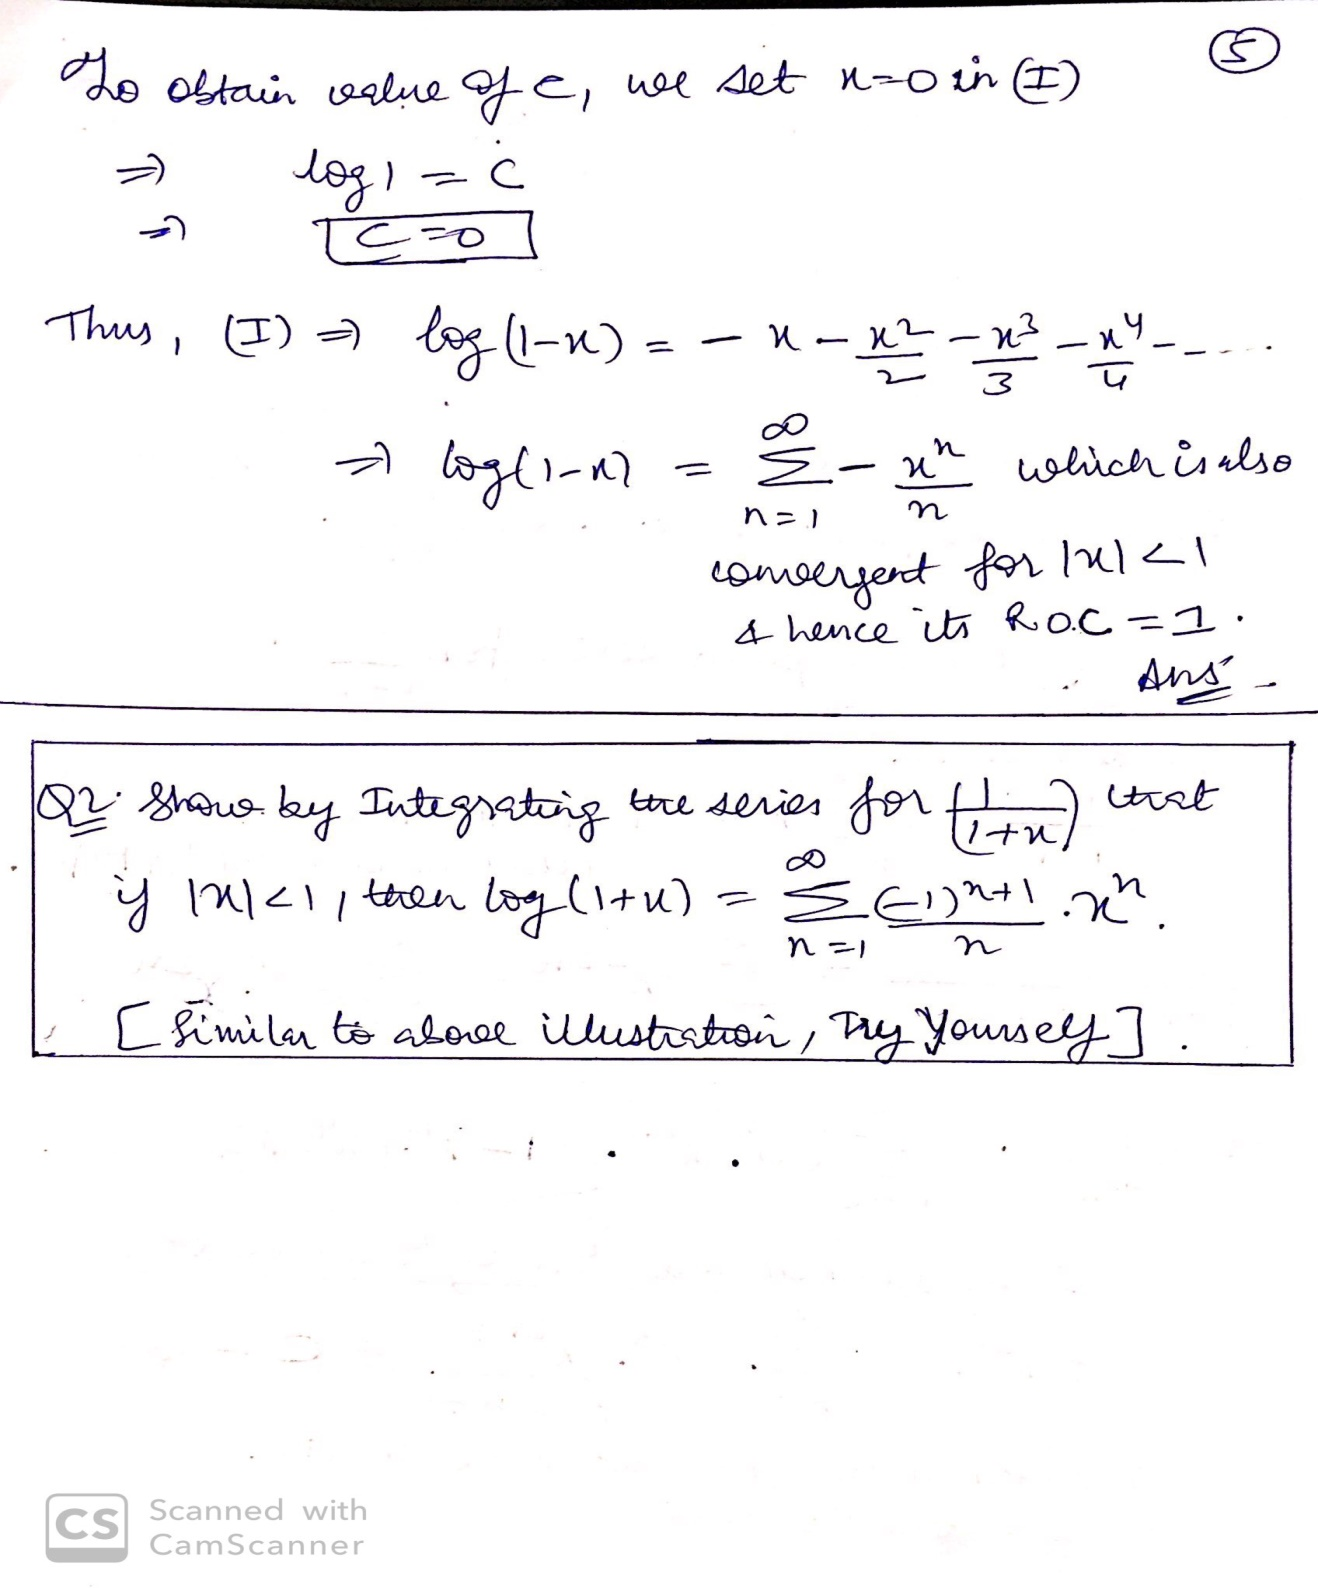 ⑤
To obtain value of c, we set x=0 in (I)
⇒ log 1 = c
⇒ c=0
Thus, (I) ⇒ log(1-x) = - x - x²/2 - x³/3 - x⁴/4 - - ....
⇒ log(1-x) = ∞ Σ n=1 - xⁿ/n which is also
convergent for |x|<1
& hence its R.O.C = 1.
Ans -
Q2. Show by Integrating the series for (1/(1+x)) that
if |x|<1, then log(1+x) = ∞ Σ n=1 (-1)ⁿ⁺¹/n . xⁿ.
[Similar to above illustration, Try Yourself].
CS Scanned with
CamScanner